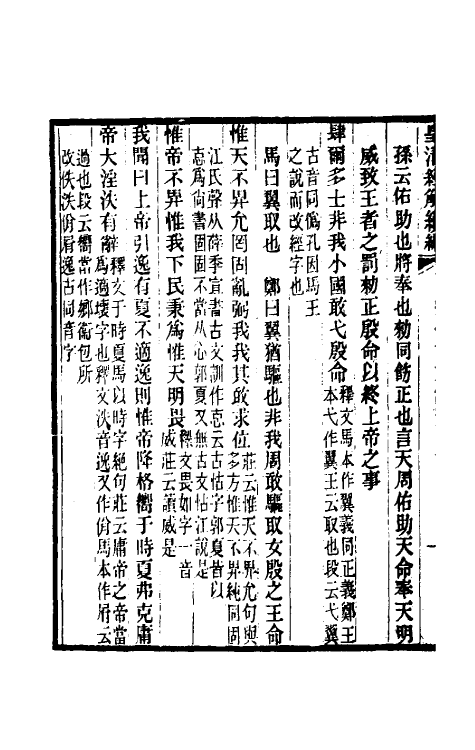 皇清經解續編
孫云佑助也將奉也勑同飭正也言天周佑助天命奉天明
威致王者之罰勑正殷命以終上帝之事
肆爾多士非我小國敢弋殷命釋文馬本作翼義同正義鄭王
本弋作翼王云取也段云弋翼
古音同僞孔因馬王
之說而改經字也
馬曰翼取也　鄭曰翼猶驅也非我周敢驅取女殷之王命
惟天不畀允罔固亂弼我我其敢求位莊云惟天不畀允句與
多方惟天不畀純同固
江氏聲从薛季宣書古文訓作怘云古怙字郭夏皆以
怘爲尙書固固不當从心郭夏又無古文怙江說是
惟帝不畀惟我下民秉爲惟天明畏釋文畏如字一音
威莊云讀威是
我聞曰上帝引逸有夏不適逸則惟帝降格嚮于時夏弗克庸
帝大淫泆有辭釋文于時夏馬以時字絕句莊云庸帝之帝當
爲適壞字也釋文泆音逸又作佾馬本作㞕云
過也段云嚮當作鄉衞包所
改佚泆佾㞕逸古同音字